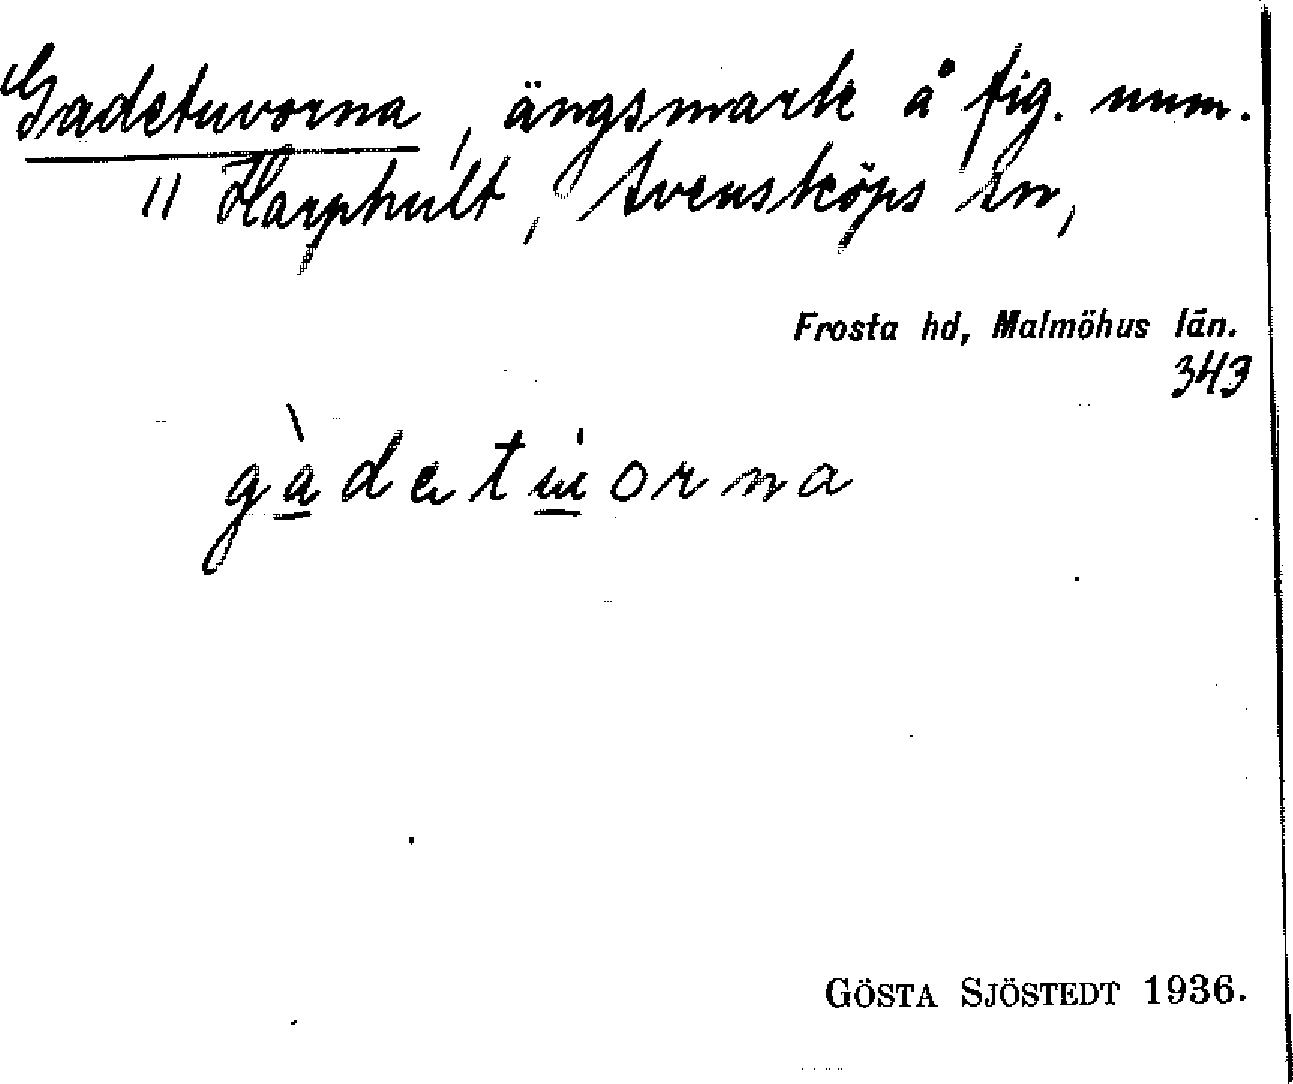 Gadetuvorna, ängsmark å fig. num.
11 Harphult, Svensköps sn,
Frosta hd, Malmöhus län.
343
gàdetúorna
GÖSTA SJÖSTEDT 1936.